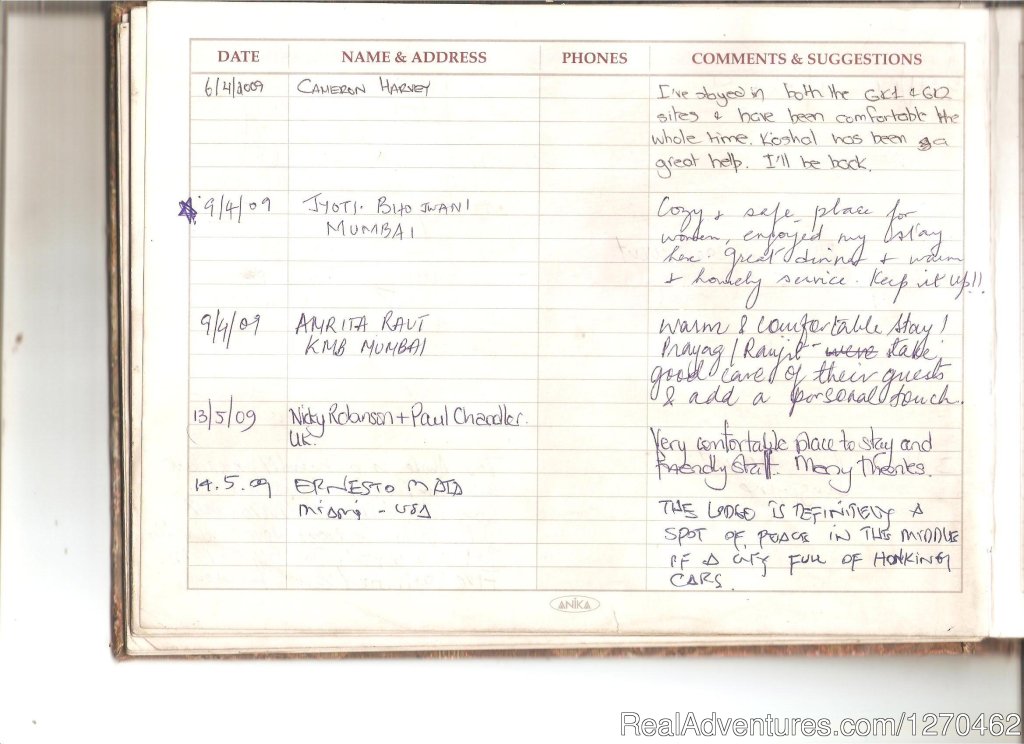 DATE NAME & ADDRESS PHONES COMMENTS & SUGGESTIONS
6/4/2009 CAMERON HARVEY I've stayed in both the GK1 & GK2
sites & have been comfortable the
whole time. Koshal has been a
great help. I'll be back.
9/4/09 JYOTI. BHOJWANI Cozy & safe place for
MUMBAI women, enjoyed my stay
here. Great dinner & warm
& homely service. Keep it up!!
9/4/09 AMRITA RAUT Warm & comfortable stay!
KMB MUMBAI Prayag/Ranjit were take
good care of their guests
& add a personal touch.
13/5/09 Nicky Robinson + Paul Chandler.
UK. Very comfortable place to stay and
friendly staff. Many thanks.
14.5.09 ERNESTO MAIA
MIAMI - USA THE LODGE IS DEFINITELY A
SPOT OF PEACE IN THE MIDDLE
OF A CITY FULL OF HONKING
CARS.
ANIKA
RealAdventures.com/1270462